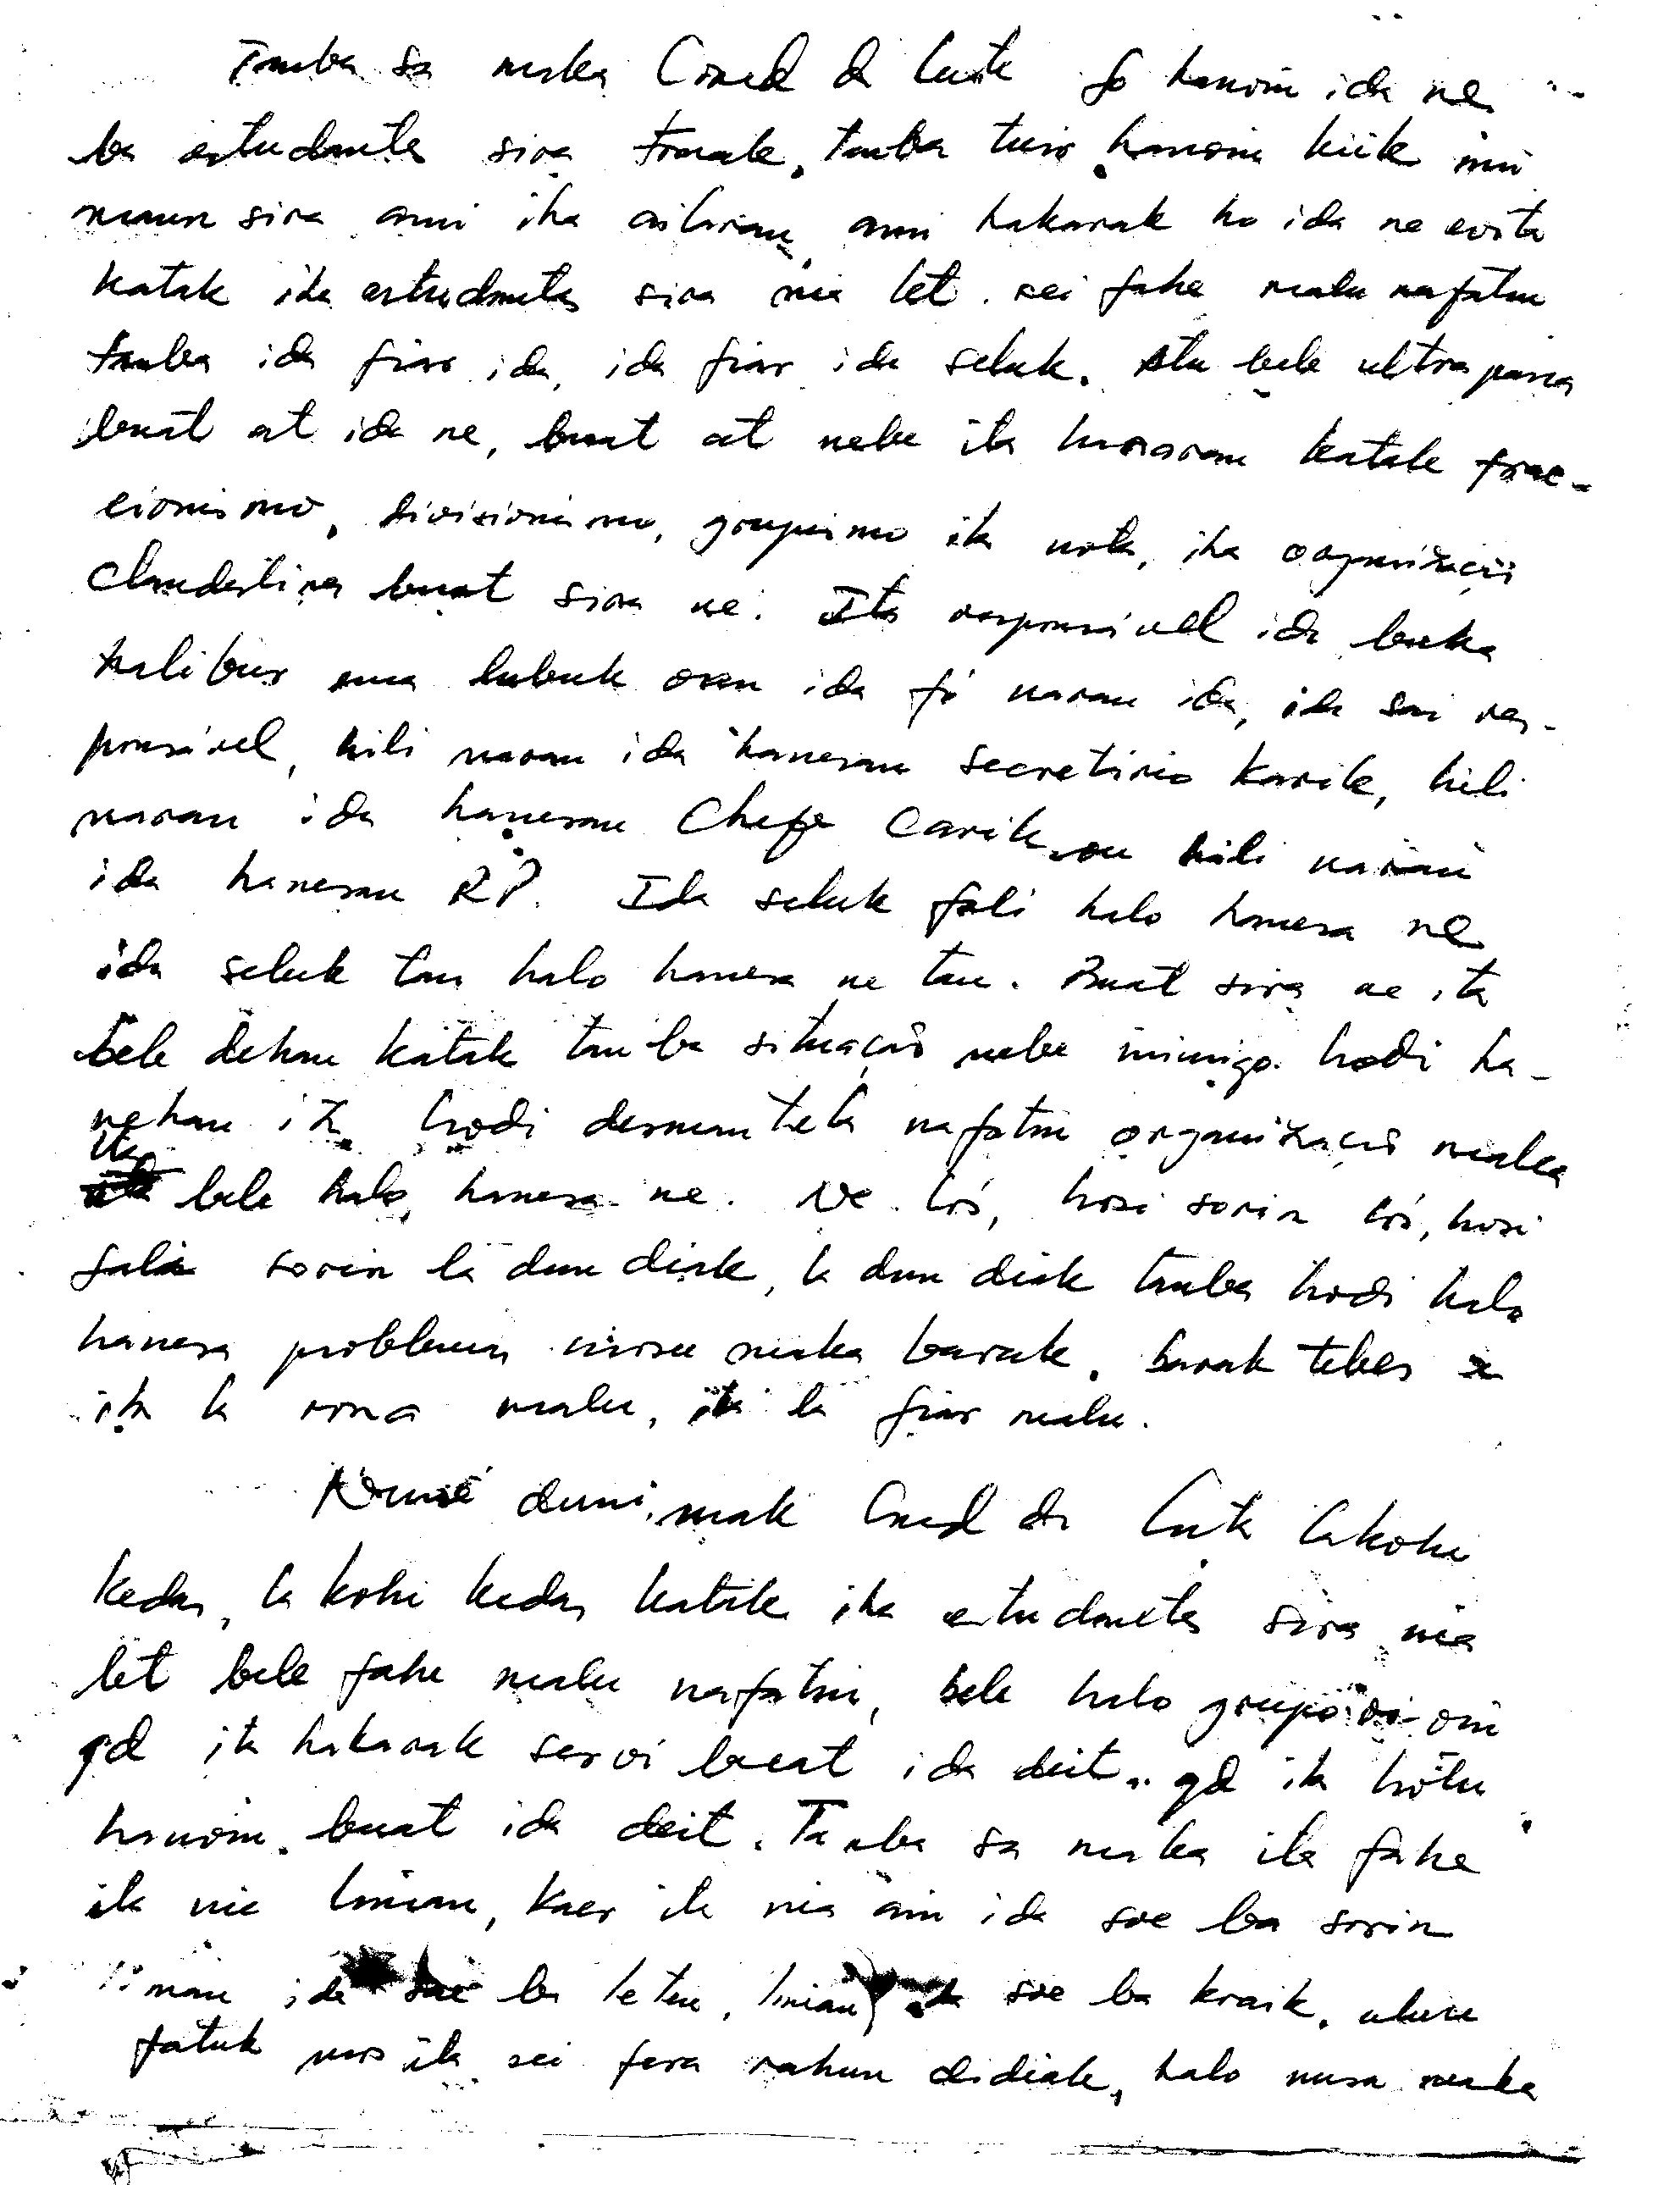 Tamba sa maka Comd da Luta fo hanoin ida ne
ba estudantes sira tomak, tamba tuir hanoin kiik imi
maun sira ami iha ailaran, ami hakarak ho ida ne evita
katak iha estudantes sira nia let sei fahe malu nafatin
tamba ida fiar ida, ida fiar ida seluk. Atu bele ultrapassa
buat at ida ne, buat at nebe ita hanaran katak frac-
cionismo, divisionismo, grupismo ita nota, iha organização
Clandestina buat sira ne. Ita responsável ida buka
halibur ema lubuk oan ida fó naran ida, ida sai res-
ponsável, hili naran ida hanesan secretário karik, hili
naran ida hanesan Chefe Carik, ou hili naran
ida hanesan RP. Ida seluk fali halo hanesa ne
ida seluk tan halo hanesa ne tan. Buat sira ne ita
bele dehan katak tan ba situação nebe inimigo hodi ha-
nehan ita hodi desmantela nafatin organização maka
ita bele halo hanesa ne. Ne lós, hosi sorin lós, hosi
fali sorin la dun diak, la dun diak tamba hodi halo
hanesa problema mosu maka barak, barak tebes
ita la rona malu, ita la fiar malu.
Nune duni, mak Comd da Luta lakohi
kedas, la kohi kedas katak iha estudantes sira nia
let bele fahe malu nafatin, bele halo grupo oi-oin
qd ita hakarak servi buat ida deit, qd ita hotu
hanoin buat ida deit. Tamba sa maka ita fahe
ita nia liman, kaer ita nia ain ida soe ba sorin
liman ida soe ba leten, liman ida soe ba kraik, ulun
fatuk mos ita sei fera rahun didiak, halo nusa maka